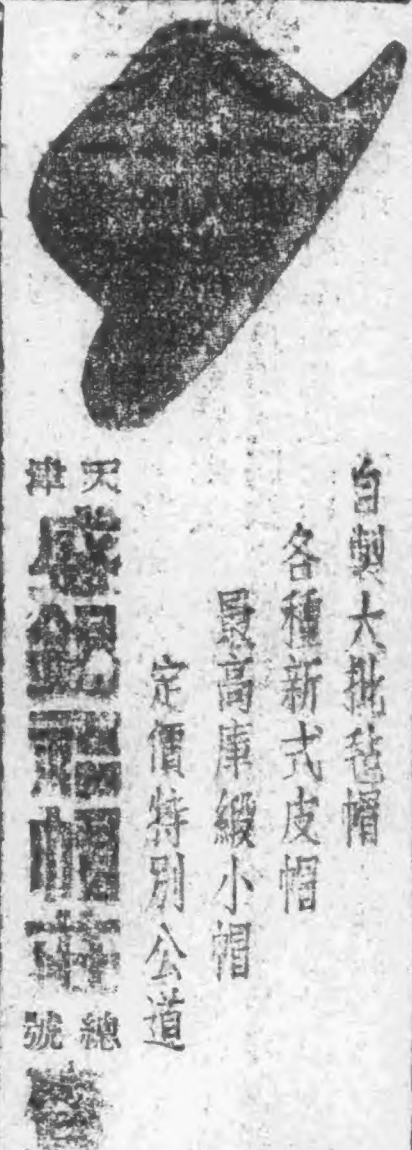 自製大批毡帽
各種新式皮帽
最高庫緞小帽
定價特別公道
天津
盛錫福帽莊
總號